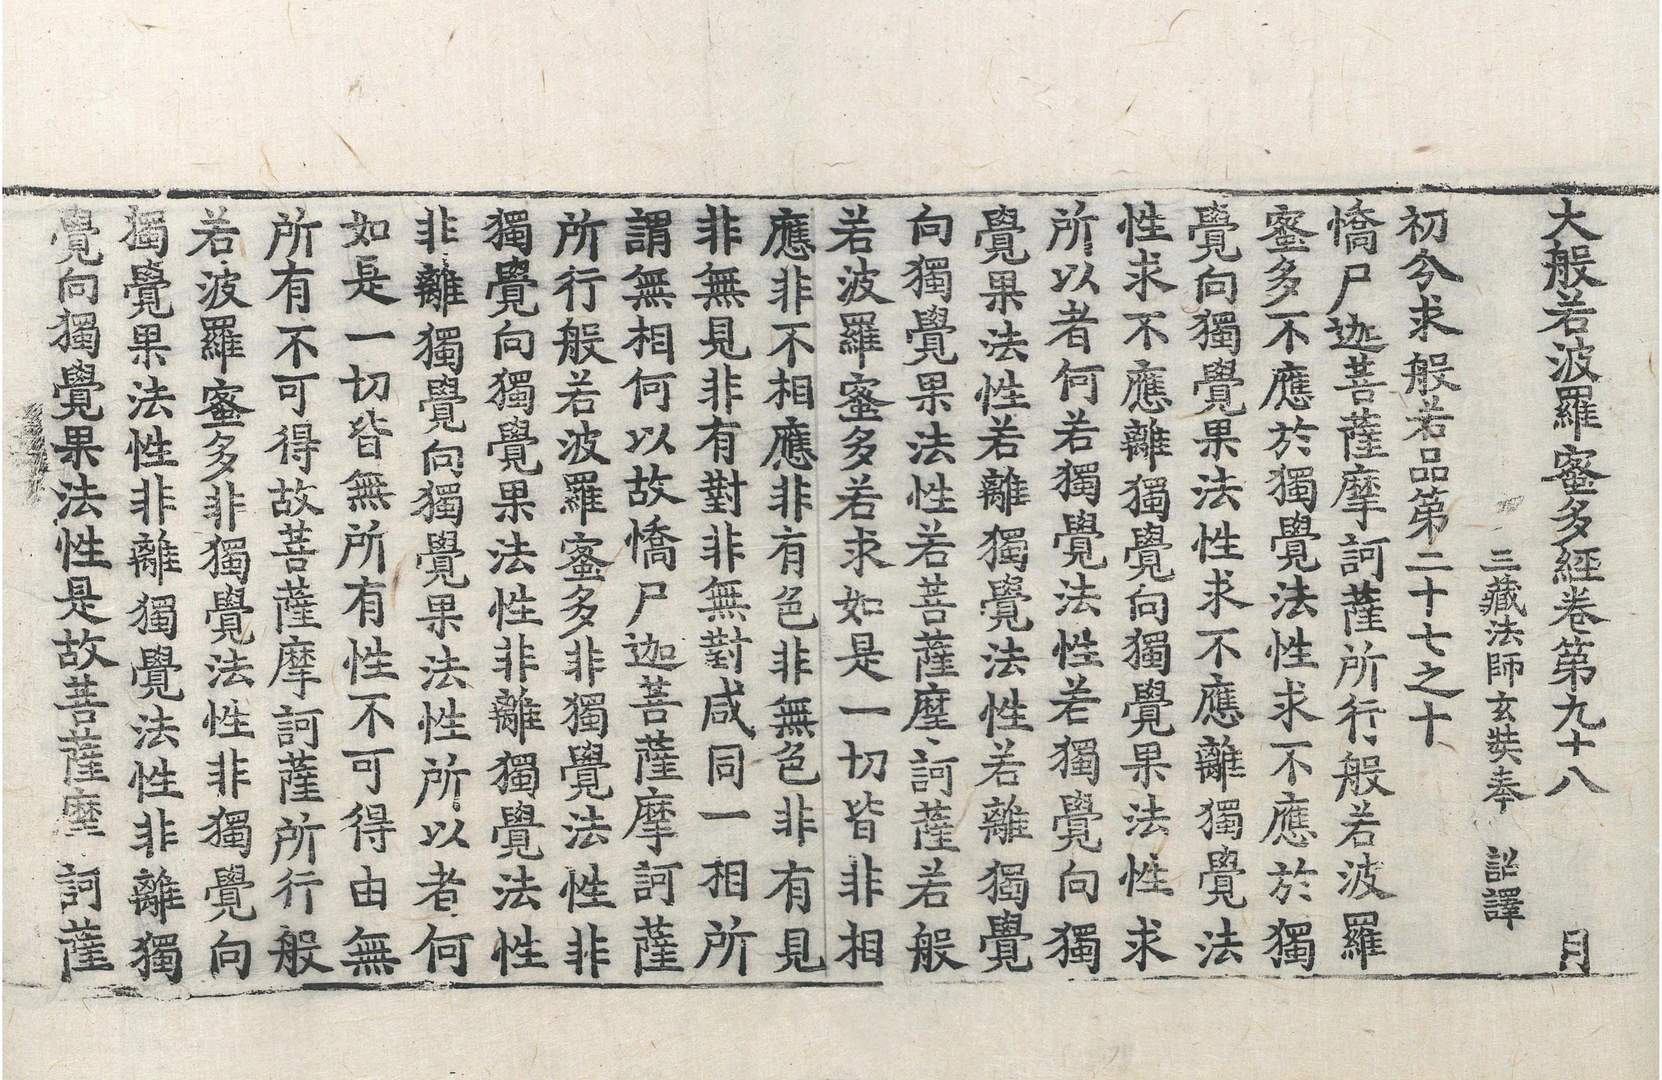 大般若波羅蜜多經卷第九十八 月
三藏法師玄奘奉 詔譯
初分求般若品第二十七之十
憍尸迦菩薩摩訶薩所行般若波羅
蜜多不應於獨覺法性求不應於獨
覺向獨覺果法性求不應離獨覺法
性求不應離獨覺向獨覺果法性求
所以者何若獨覺法性若獨覺向獨
覺果法性若離獨覺法性若離獨覺
向獨覺果法性若菩薩摩訶薩若般
若波羅蜜多若求如是一切皆非相
應非不相應非有色非無色非有見
非無見非有對非無對咸同一相所
謂無相何以故憍尸迦菩薩摩訶薩
所行般若波羅蜜多非獨覺法性非
獨覺向獨覺果法性非離獨覺法性
非離獨覺向獨覺果法性所以者何
如是一切皆無所有性不可得由無
所有不可得故菩薩摩訶薩所行般
若波羅蜜多非獨覺法性非獨覺向
獨覺果法性非離獨覺法性非離獨
覺向獨覺果法性是故菩薩摩訶薩